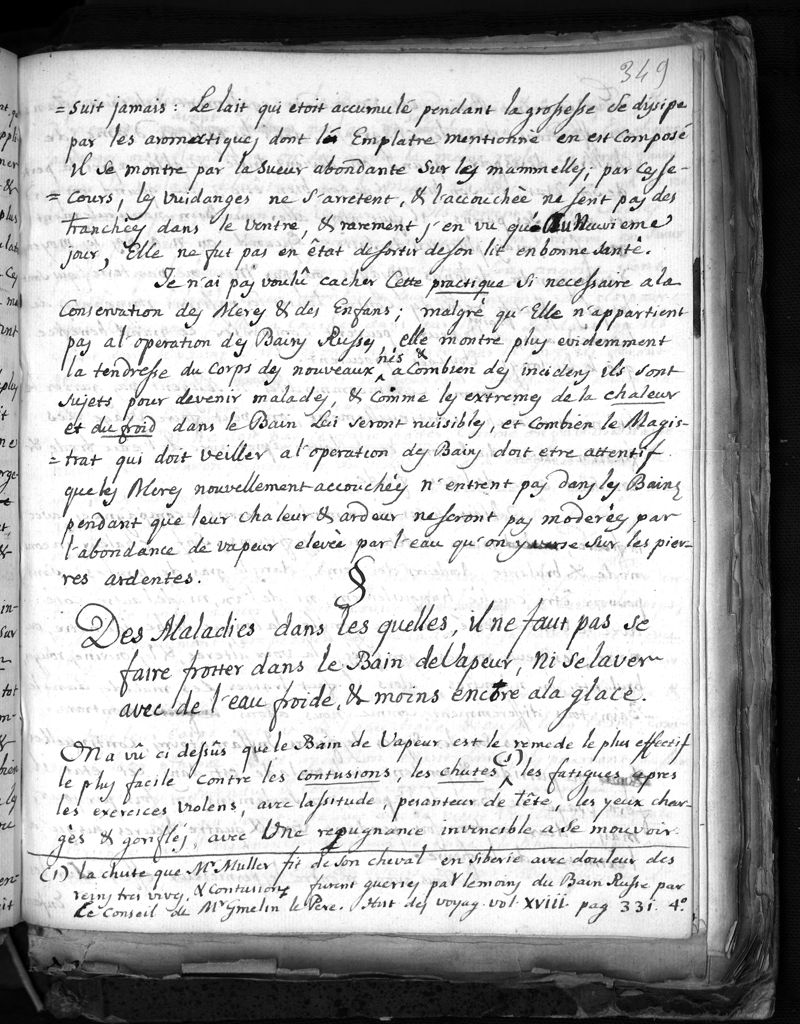 349
= suit jamais : Le lait qui etoit accumulé pendant la grossesse se dysipe
par les aromatiques dont lé Emplatre mentionné en est Composé
il se montre par la sueur abondante sur les mammelles; par ces se-
= cours, les vuidanges ne s'arretent, & l'accouchèe ne sent pas des
tranchèes dans le ventre, & rarement j'en vu qué Au Neuvieme
jour, Elle ne fut pas en êtat de sortir de son lit en bonne santé.
Je n'ai pas voulû cacher Cette practique si necessaire a la
Conservation des Meres & des Enfans; malgré qu'Elle n'appartient
pas a l'operation des Bains Russes, elle montre plus evidemment
la tendresse du corps des nouveaux nés & a Combien des incidens ils sont
sujets pour devenir malades, & Comme les extremes de la chaleur
et du froid dans le Bain Lui seront nuisibles, et Combien le Magis-
= trat qui doit veiller a l'operation des Bains doit etre attentif
que les Meres nouvellement accouchées n'entrent pas dans les Bains
pendant que leur chaleur & ardeur ne seront pas moderées par
l'abondance de vapeur elevèe par l'eau qu'on y verse sur les pier-
res ardentes.
§
Des Maladies dans les quelles, il ne faut pas se
faire frotter dans le Bain de Vapeur, ni se laver
avec de l'eau froide, & moins encore a la glace.
On a vû ci dessûs que le Bain de Vapeur est le remede le plus effectif
le plus facile contre les contusions, les chutes (1), les fatigues apres
les exercices violens, avec lassitude, pesanteur de tête, les yeux char-
gès & gonflés, avec Une repugnance invincible a se mouvoir.
(1) la chute que Mr. Muller fit de son cheval en siberie avec douleur des
reins tres vives, & contusions furent gueries par le moins du Bain Russe par
Le Conseil de Mr Gmelin le Pere. Hist des voyag. vol XVIII. pag 331. 4º